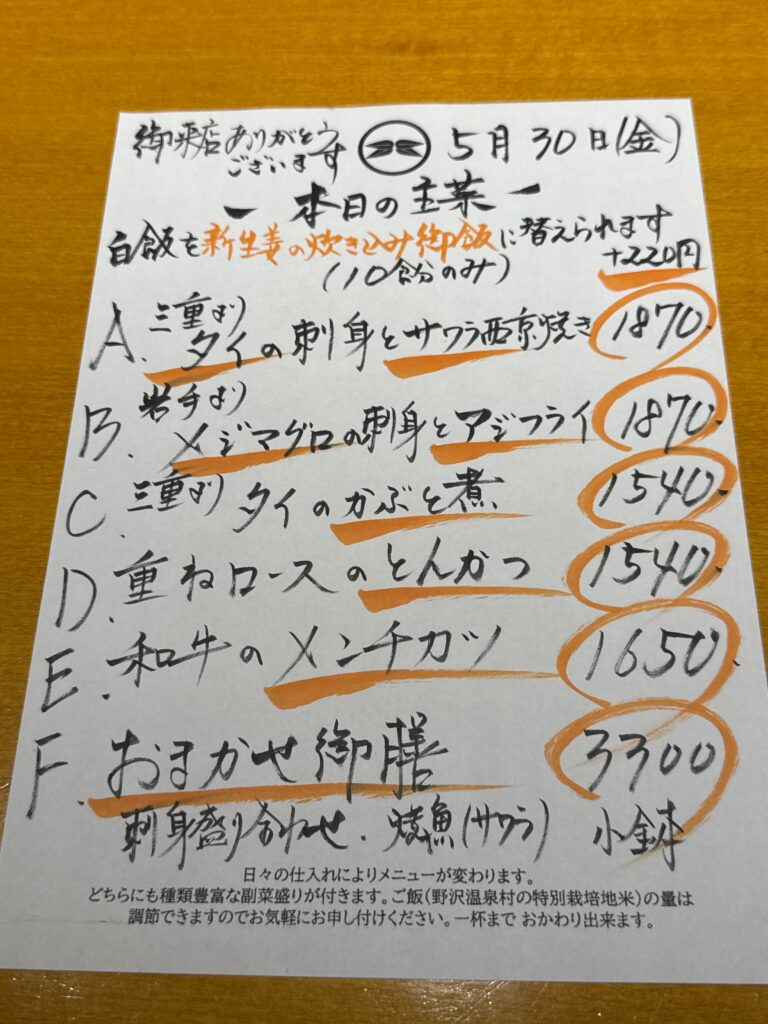 御来店ありがとう
ございます
5月30日(金)
ー 本日の主菜 ー
白飯を新生姜の炊き込み御飯に替えられます
(10食分のみ) +220円
三重より
A. タイの刺身とサワラ西京焼き 1870.
岩手より
B. メジマグロの刺身とアジフライ 1870.
C. 三重より タイのかぶと煮 1540.
D. 重ねロースのとんかつ 1540.
E. 和牛のメンチカツ 1650.
F. おまかせ御膳 3300
刺身盛り合わせ・焼魚(サワラ) 小鉢
日々の仕入れによりメニューが変わります。
どちらにも種類豊富な副菜盛りが付きます。ご飯(野沢温泉村の特別栽培地米)の量は
調節できますのでお気軽にお申し付けください。一杯まで おかわり出来ます。